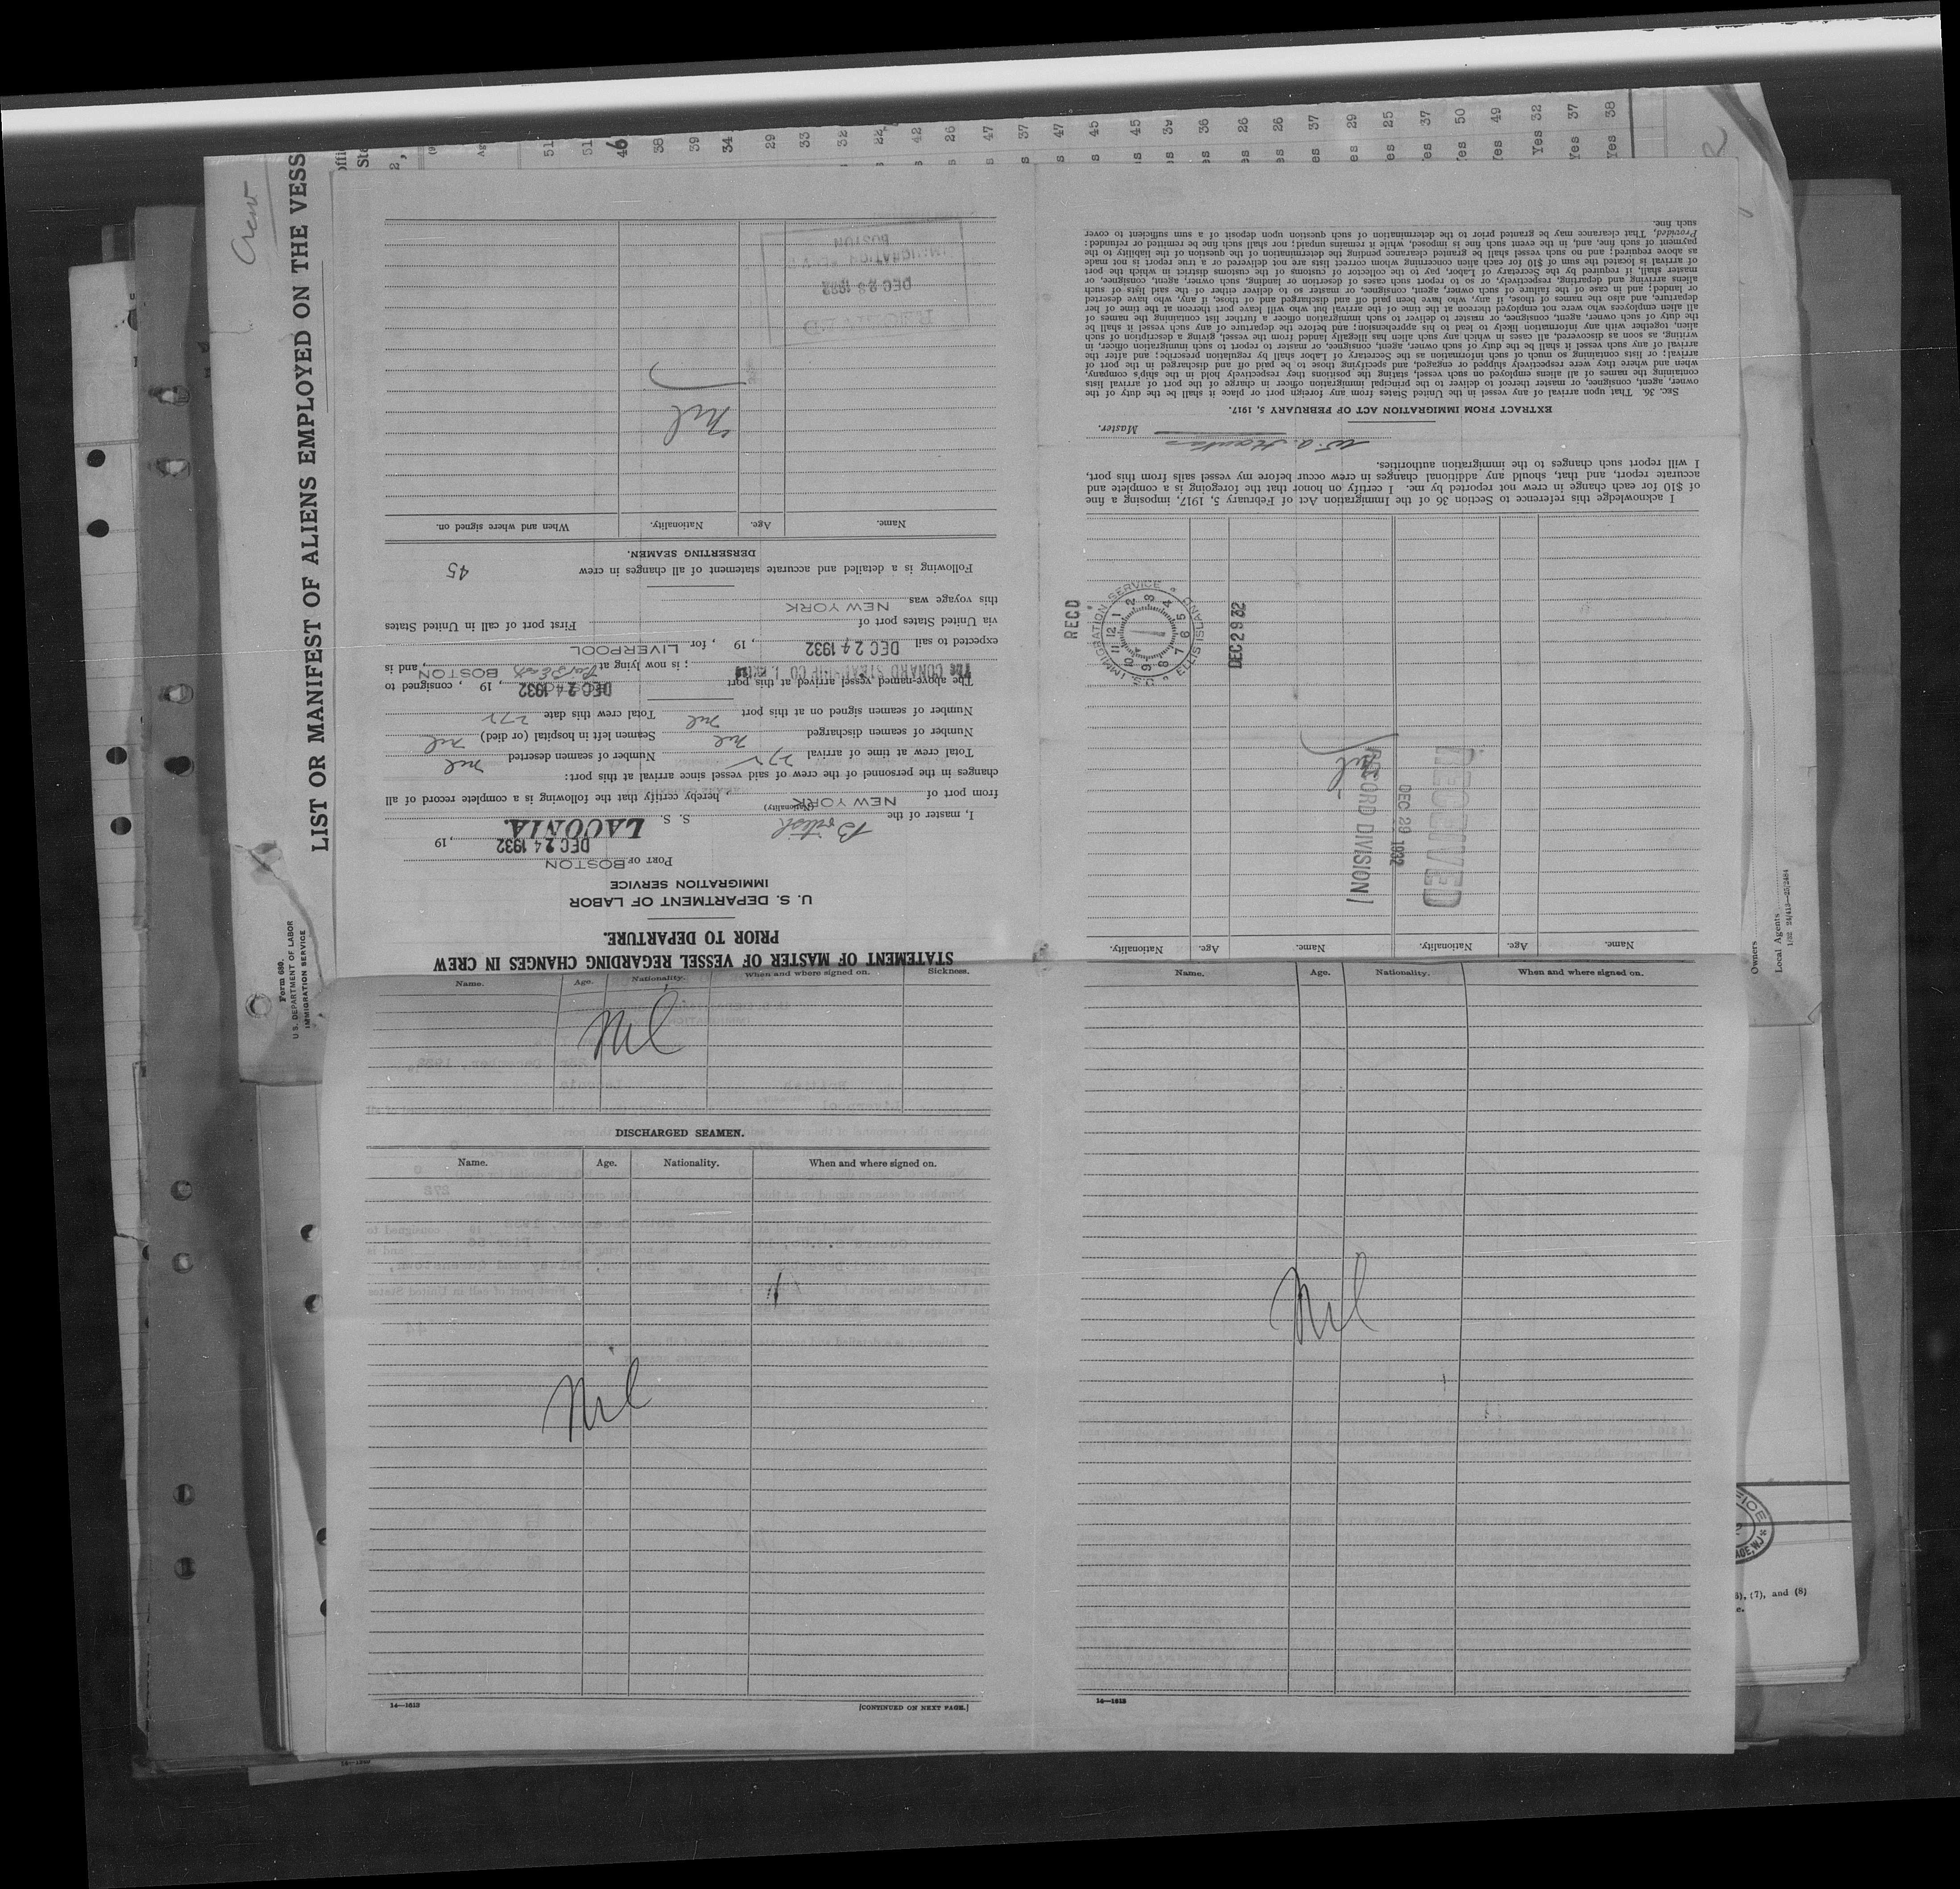 Crew
LIST OR MANIFEST OF ALIENS EMPLOYED ON THE VESS
Form 680.
U. S. DEPARTMENT OF LABOR
IMMIGRATION SERVICE
51
51
46
38
39
34
29
33
32
22
42
26
47
37
47
45
45
39
36
26
26
37
29
25
37
50
Yes 49
Yes 32
Yes 37
Yes 38
STATEMENT OF MASTER OF VESSEL REGARDING CHANGES IN CREW
PRIOR TO DEPARTURE.
U. S. DEPARTMENT OF LABOR
IMMIGRATION SERVICE
PORT OF BOSTON
DEC 24 1932, 19
I, master of the British S. S. LACONIA.
(Nationality)
from port of NEW YORK, hereby certify that the following is a complete record of all
changes in the personnel of the crew of said vessel since arrival at this port:
Total crew at time of arrival 272 Number of seamen deserted nil
Number of seamen discharged nil Seamen left in hospital (or died) nil
Number of seamen signed on at this port nil Total crew this date 272
The above-named vessel arrived at this port DEC 24 1932, 19 , consigned to
The CUNARD STEAMSHIP CO. ; is now lying at BOSTON, and is
expected to sail DEC 24 1932, 19 , for LIVERPOOL
via United States port of First port of call in United States
this voyage was NEW YORK
Following is a detailed and accurate statement of all changes in crew 45
DERSERTING SEAMEN.
Name. Age. Nationality. When and where signed on.
Nil
RECEIVED
DEC 28 1932
IMMIGRATION
BOSTON
Name. Age. Nationality. When and where signed on. Sickness.
Nil
DISCHARGED SEAMEN.
Name. Age. Nationality. When and where signed on.
Nil
14—1613
[CONTINUED ON NEXT PAGE.]
Name. Age. Nationality. When and where signed on.
Nil
14—1613
Name. Age. Nationality. Name. Age. Nationality.
Nil
RECEIVED
DEC 29 1932
RECORD DIVISION
REC'D
U.S. IMMIGRATION SERVICE ELLIS ISLAND
12 1 2 3 4 5 6 7 8 9 10 11
DEC 29 32
I acknowledge this reference to Section 36 of the Immigration Act of February 5, 1917, imposing a fine
of $10 for each change in crew not reported by me. I certify on honor that the foregoing is a complete and
accurate report, and that, should any additional changes in crew occur before my vessel sails from this port,
I will report such changes to the immigration authorities.
Master.
EXTRACT FROM IMMIGRATION ACT OF FEBRUARY 5, 1917.
SEC. 36. That upon arrival of any vessel in the United States from any foreign port or place it shall be the duty of the
owner, agent, consignee, or master thereof to deliver to the principal immigration officer in charge of the port of arrival lists
containing the names of all aliens employed on such vessel, stating the positions they respectively hold in the ship's company,
when and where they were respectively shipped or engaged, and specifying those to be paid off and discharged in the port of
arrival; or lists containing so much of such information as the Secretary of Labor shall by regulation prescribe; and after the
arrival of any such vessel it shall be the duty of such owner, agent, consignee, or master to report to such immigration officer, in
writing, as soon as discovered, all cases in which any such alien has illegally landed from the vessel, giving a description of such
alien, together with any information likely to lead to his apprehension; and before the departure of any such vessel it shall be
the duty of such owner, agent, consignee, or master to deliver to such immigration officer a further list containing the names of
all alien employees who were not employed thereon at the time of the arrival but who will leave port thereon at the time of her
departure, and also the names of those, if any, who have been paid off and discharged and of those, if any, who have deserted
or landed; and in case of the failure of such owner, agent, consignee, or master so to deliver either of the said lists of such
aliens arriving and departing, respectively, or so to report such cases of desertion or landing, such owner, agent, consignee, or
master shall, if required by the Secretary of Labor, pay to the collector of customs of the customs district in which the port
of arrival is located the sum of $10 for each alien concerning whom correct lists are not delivered or a true report is not made
as above required; and no such vessel shall be granted clearance pending the determination of the question of the liability to the
payment of such fine, and, in the event such fine is imposed, while it remains unpaid; nor shall such fine be remitted or refunded:
Provided, That clearance may be granted prior to the determination of such question upon deposit of a sum sufficient to cover
such fine.
Owners
Local Agents
(7), and (8)